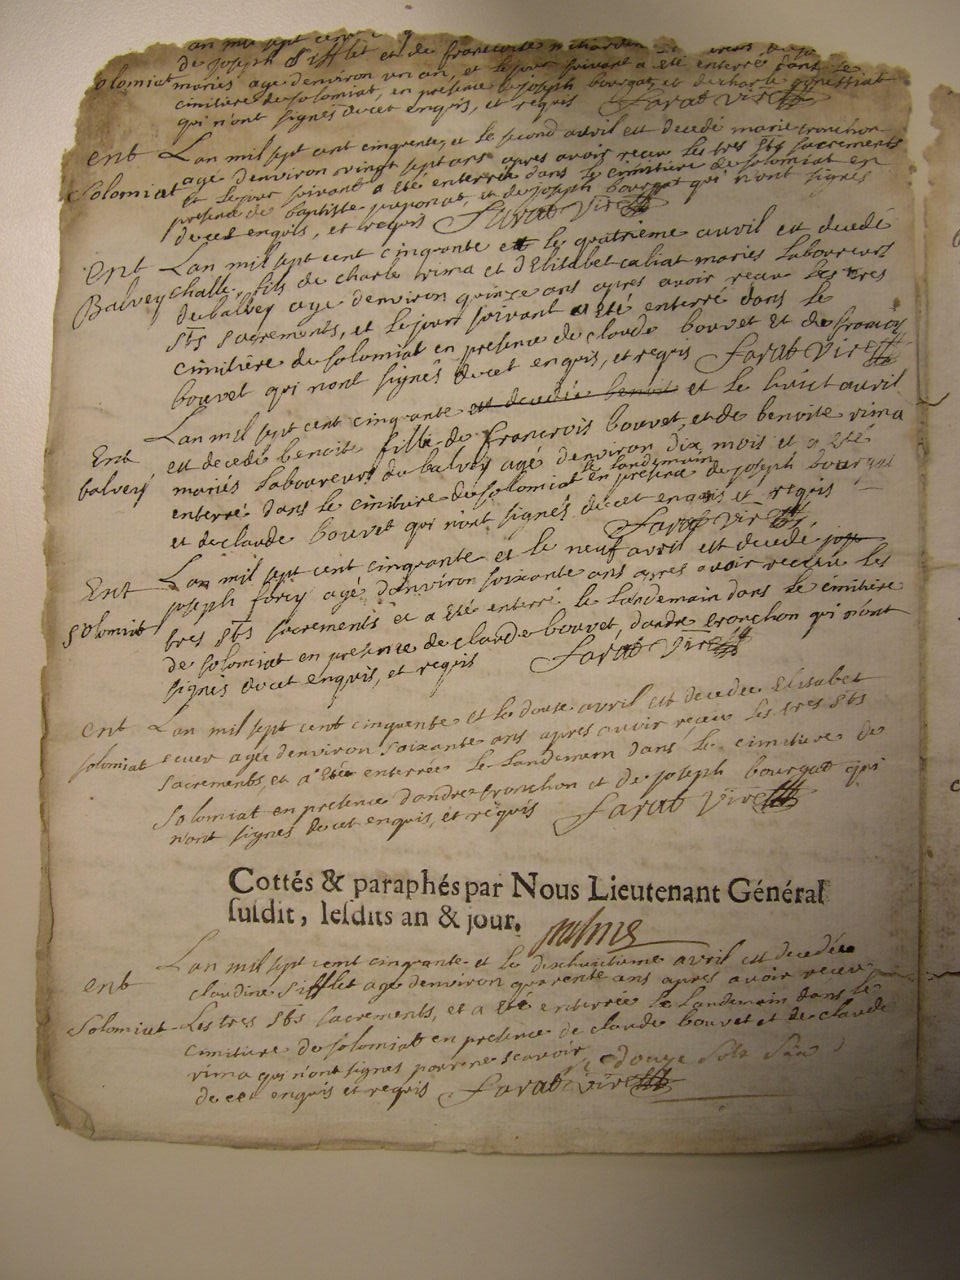 an mil sept cent
de joseph Sifflet et de francoise
Solomiat mariés agé denviron un an, et le jour suivant a été enterré dans le
cimitiere de Solomiat, en presence de joseph bourgat et de charle
qui n'ont signés de cet enquis, et requis Sarat vire
ent Lan mil sept cent cinquante, et le second avril est decedé marie tronchon
Solomiat agé denviron vingt sept ans apres avoir receu les tres Sts sacrements
et le jour suivant a été enterrée dans le cimitiere de solomiat en
presence de baptiste et de joseph bourgat qui n'ont signés
de cet enquis, et requis Sarat vire
ent Lan mil sept cent cinquante et le quatrieme avril est decedé
Balvey charle, fils de charle vima et d'Elisabet caliat mariés Laboureurs
de balvey agé denviron quinze ans apres avoir receu les tres
Sts sacrements, et le jour suivant a été enterré dans le
cimitière de solomiat en presence de claude bouvet et de francois
bouvet qui n'ont signés de cet enquis, et requis Sarat vire
Lan mil sept cent cinquante est decedée benoit et le huict avril
Ent est decedé benoit fille de francois bouvet, et de benoite vima
balvey mariés Laboureurs du balvey agé denviron dix mois et a été
le landemain
enterré dans le cimitiere de solomiat en presence de joseph bourgat
et de claude bouvet qui n'ont signés de cet enquis et requis
Sarat vire
Ent Lan mil sept cent cinquante et le neuf avril est decedé jose
joseph fory agé denviron soixante ans apres avoir receu les
Solomiat tres Sts sacrements et a été enterré le Landemain dans le cimitiere
de solomiat en presence de claude bouvet, dandre tronchon qui n'ont
signés de cet enquis, et requis Sarat vire
ent Lan mil sept cent cinquante et le douse avril est decedée Elisabet
solomiat ecuer agé denviron soixante ans apres avoir receu les tres Sts
sacrements, et a été enterrée le Landemain dans le cimitiere de
Solomiat en presence dandre tronchon et de joseph bourgat qui
n'ont signés de cet enquis, et requis Sarat vire
Cottés & paraphés par Nous Lieutenant Général
susdit, lesdits an & jour.
Lan mil sept cent cinquante et le dixhuitieme avril est decedée
ent claudine Sifflet agé denviron quarente ans apres avoir receu
Solomiat Les tres Sts sacrements, et a été enterrée le Landemain dans le
cimitiere de solomiat en presence de claude bouvet et de claude
vima qui n'ont signes pour ne scavoir
de cet enquis et requis Sarat vire douze sols